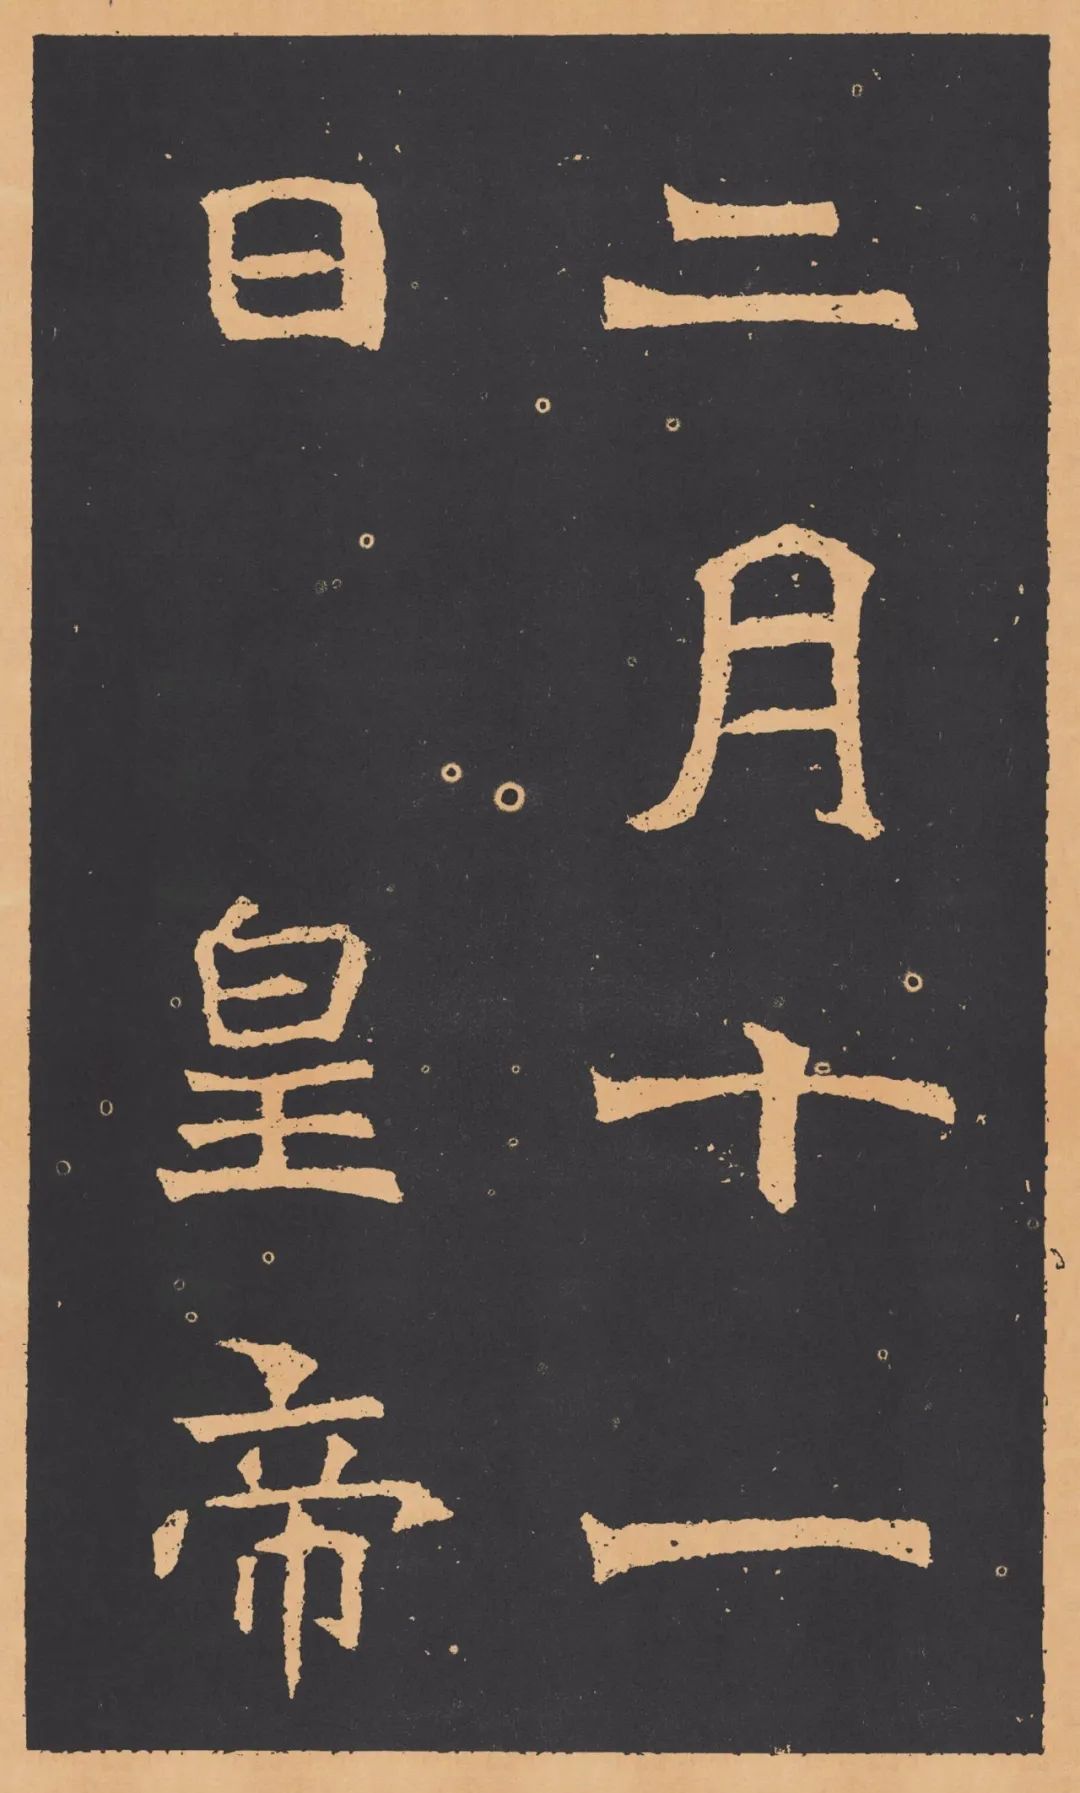 二月十一
日 皇帝